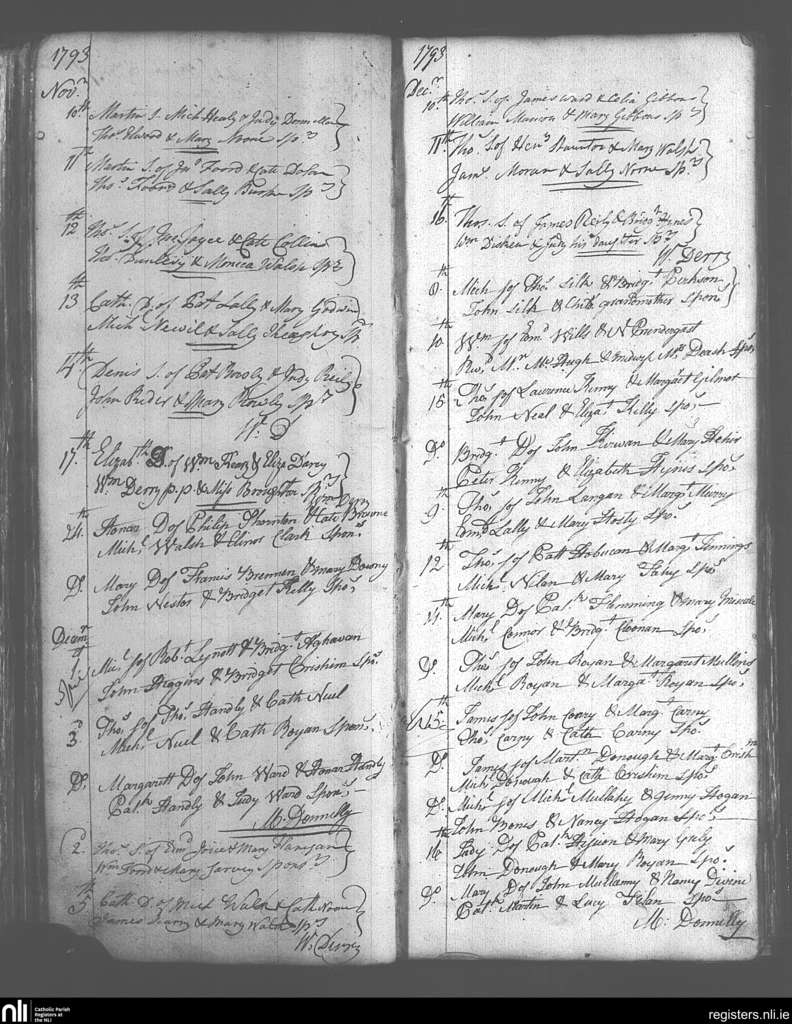 1793
Novr
10th Martin S. Mich Healy & Judy Donnellan
Thos Elward & Mary Noone Sprs
11th Martin S. of Jno Foord & Cate Dolan
Thos Foord & Sally Burke Sprs
12th Thos S. of Joyce & Cate Collins
Dunlevy & Monica Walsh Sprs
13th Cath D. of Pat Lally & Mary Godwin
Mich Newil & Sally Sprs
14th Denis S. of Pat & Judy Reily
John Rider & Mary Sprs
W. D
17th Elizabth D. of Wm & Eliza Darcy
Wm Derry p.p. & Miss Broughton Sprs
Wm Derry
24th Honor D of Philip Thornton & Cate Browne
Michl Walsh & Elinor Clark Sponrs
Do Mary D of Francis Brennan & Mary Downy
John Nestor & Bridget Kelly Spors
Decemr
1st Micl s of Robt Lynott & Bridgt Aghavan
John Higgins & Bridget Crishim Spos
3d Thos s of Thos Handly & Cath Nuel
Michl Nuel & Cath Royan Sponrs
Do Margarett D of John Ward & Honor Handly
Patk Handly & Judy Ward Sponrs
M. Donnelly
2d Thos S. of Edmd Joice & Mary Flanigan
Wm Ford & Mary Garvey Sponsrs
5th Cath D. of Mich Walsh & Cath Noone
James & Mary Walsh Sprs
W. Derry
1793
Decr
10th Thos S. of James Ward & Celia Gibbons
William Mannon & Mary Gibbons Sprs
11th Thos S of Heny Staunton & Mary Walsh
Jams Moran & Sally Noone Sprs
16th Thos S. of James Reily & Bridgt Hynes
Wm & Judy his daughter Sprs
W. Derry
8th Mich s of Thos Silk & Bridgt
John Silk & Child's grandmother Sponrs
10th Wm s of Edmd Wills & N Prendergast
Revd Mr McHugh & midwife Mrs Spos
15th Thos s of Laurence Kenny & Margaret Gilmor
John Neal & Elizat Kelly Spos
Do Bridgt D of John Kirwan & Mary Hehir
Peter Kenny & Elizabeth Hynes Spos
9th Thos s of John Langan & Margt Murry
Edmd Lally & Mary Hosty Spos
12th Thos s of Patt & Margt Finnings
Michl Nilan & Mary Fahy Spos
14th Mary D of Patk Flemming & Mary
Michl Connor & Bridgt Coonan Spos
Do Thos s of John Royan & Margaret Mullins
Michl Royan & Margat Royan Spos
15th James s of John Carry & Margt Carny
Thos Carny & Cath Carny Spos
Do James s of Martn Donough & Margt Crishm
Michl Donough & Cath Crishim Spos
Do Michl s of Michl Mullahy & Jenny Hogan
John Bones & Nancy Hogan Spos
16th Judy D of Patk & Mary
John Donough & Mary Royan Spos
Do Mary D of John Mullamy & Nancy Divine
Patk Martin & Lucy Filan Spos
M: Donnelly
nli Catholic Parish
Registers at
the NLI
registers.nli.ie